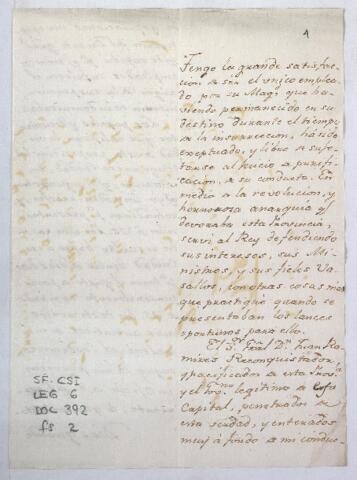 1
Tengo la grande satisfac-
cion, de sèr el unico emplea-
do por su Mag.d que ha-
viendo permanecido en su
destino durante el tiempo
de la insurreccion, há sido
exeptuado, y libre de suje-
tarse al Juicio de purifi-
cacion, de su conducta. En
medio de la revolucion, y
horrorosa anarquia q.e
devoraba esta Provincia,
servi al Rey defendiendo
sus intereses, sus Mi-
nistros, y sus fieles Va-
sallos, con otras cosas mas
que practiquè quando se
presentaban los lances
oportunos para ello.
El S.or Gral D.n Juan Ra-
mirez Reconquistador
y pacificador de esta Prov.a
y el Gov.no legitimo de esta
Capital, penetrados de
esta verdad, y enterados
muy à fondo de mi conduc-
SF. CSI
LEG 6
DOC 392
fs 2